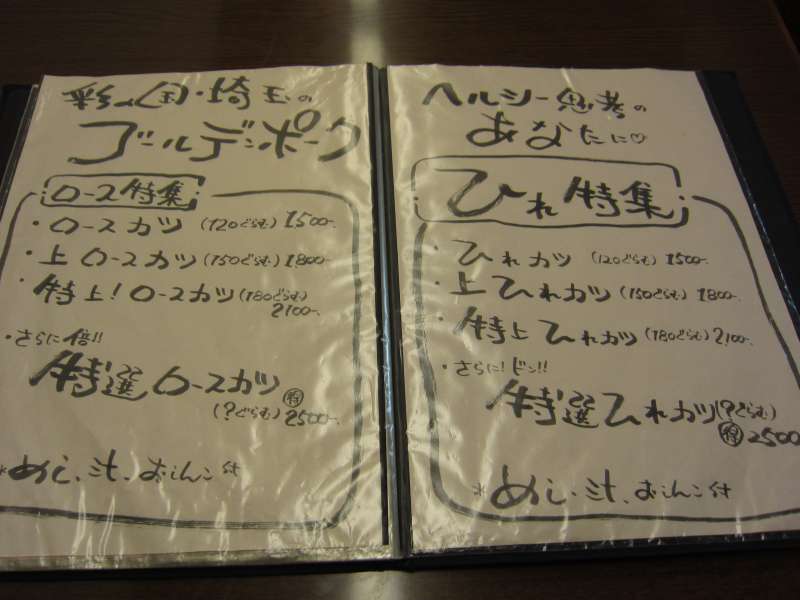 彩の国・埼玉の
ゴールデンポーク
ロース特集
・ロースカツ (120ぐらむ) 1500-
・上ロースカツ (150ぐらむ) 1800-
・特上!ロースカツ (180ぐらむ)
2100-
・さらに倍!!
特選ロースカツ
(?ぐらむ) 得 2500-
*めし、汁、おしんこ付
ヘルシー思考の
あなたに♡
ひれ特集
・ひれカツ (120ぐらむ) 1500-
・上ひれカツ (150ぐらむ) 1800-
・特上ひれカツ (180ぐらむ) 2100-
・さらに!ドン!!
特選ひれカツ (?ぐらむ)
得 2500
*めし・汁、おしんこ付